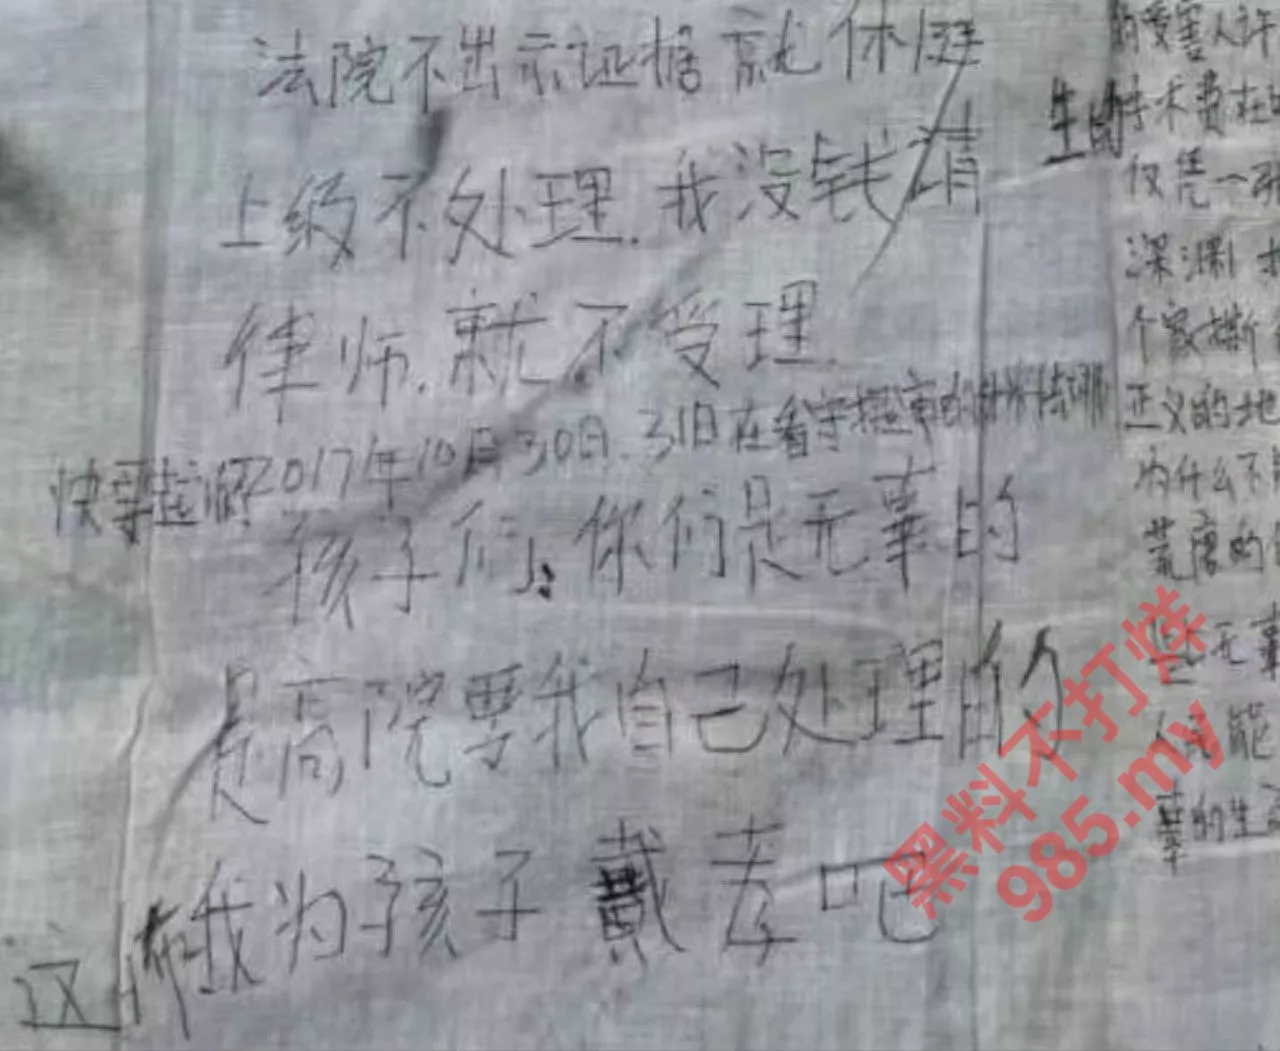 法院不出示证据就休庭
上级不处理.我没钱请
律师.就不受理.
2017年10月30日.31日在看守
孩子们:你们是无辜的
是高院要我自己处理的
这 我为孩子戴孝吧
的受害人许
生的手术费在
仅凭一
深渊
个家
正义的地
为什么不
荒唐的
无辜
能
辜的生
黑料不打烊
985.my